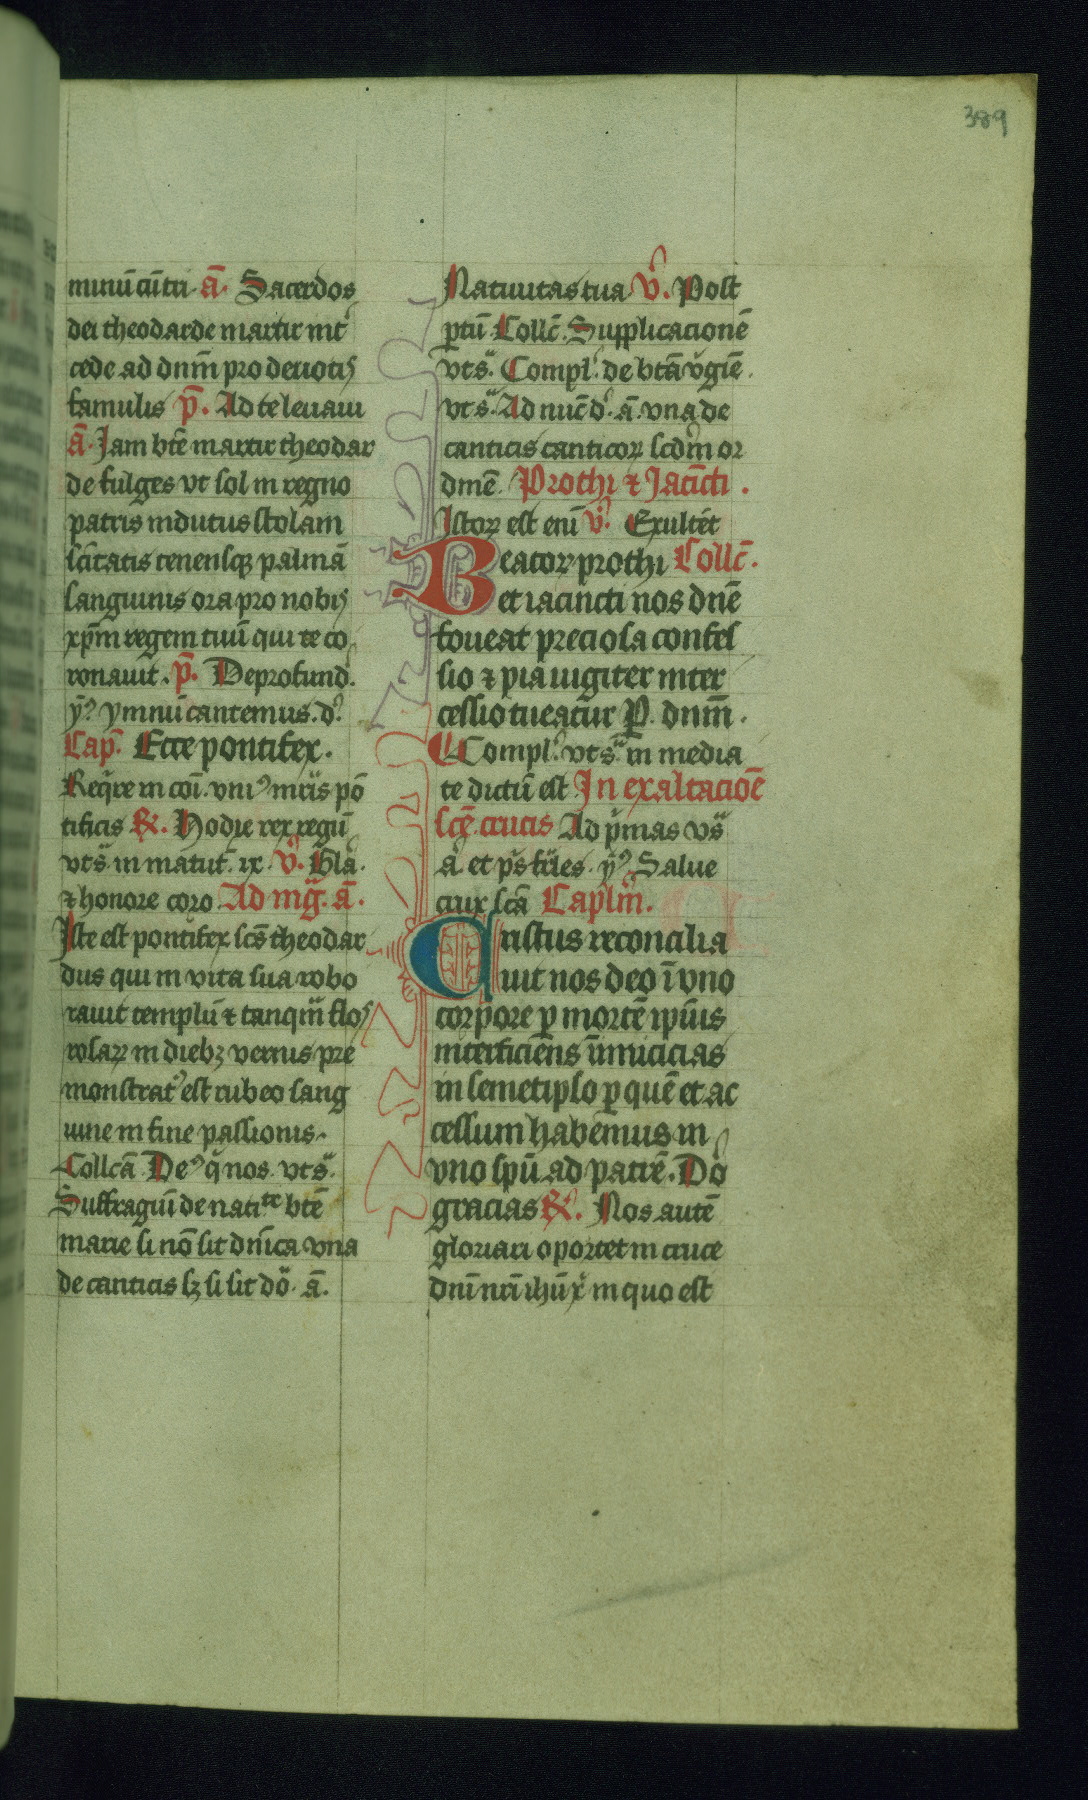 389
minū cūcti. a̅. Sacerdos
dei theodarde martir int̉
cede ad dnm̄ pro deuotis
famulis p̄. Ad te leuaui
a̅. Iam bt̄e martir theodar
de fulges vt sol in regno
patris indutus stolam
sc̄itatis tenensq; palmā
sanguinis ora pro nobis
xp̄m regem tuū qui te co
ronauit. p̄. De profund̉.
ỹ ymnū cantemus. d̉.
Cap̉. Ecce pontifex.
Req̉re in cōi. vni⁹ mr̄is pō
tificis R̸. Hodie rex regū
vt s̉. in matut̄. ix. v̉. Glā.
⁊ honore coro Ad mg̉. a̅.
Iste est pontifex sc̄s theodar
dus qui in vita sua robo
rauit templū ⁊ tanqm̄ flos
rosaꝝ in dieb; vernis pre
monstrat⁹ est rubeo sang
uine in fine passionis.
Collcā. De⁹ q̉ nos. vt s̉.
Suffragiū de natite bt̄e
marie si nō sit dn̄ica vna
de canticis s; si sit dō. a̅.
Natiuitas tua v̉. Post
ptū Collc̄. Supplicacionē
vt s̉. Compl̉. de btā v̉gīe.
vt s̉. Ad nūc d̉. a̅. vna de
canticis canticoꝝ scd̄m or
dinē. Prothi ⁊ Iacīcti.
Istoꝝ est enī v̉. Exultēt
Beatoꝝ prothi Collc̄.
et iacincti nos dn̄e
foueat preciosa confes
sio ⁊ pia iugiter inter
cessio tueatur P. dnm̄.
Compl̉. vt s̉. in media
te dictū est In exaltacioē
sc̄e. crucis Ad p̉mas vs̉
a̅. et ps̄ fr̄ies. ỹ Salue
crux scā Caplm̄.
Cristus reconcilia
uit nos deo ī vno
corpore ꝑ mortē ip̄ius
interficiens inimicicias
in semetipso ꝑ quē et ac
cessum habemus in
vno spū ad patrē. Dō
gracias R̸. Nos autē
gloriari oportet in cruce
dnī nrī ihū x̉ in quo est